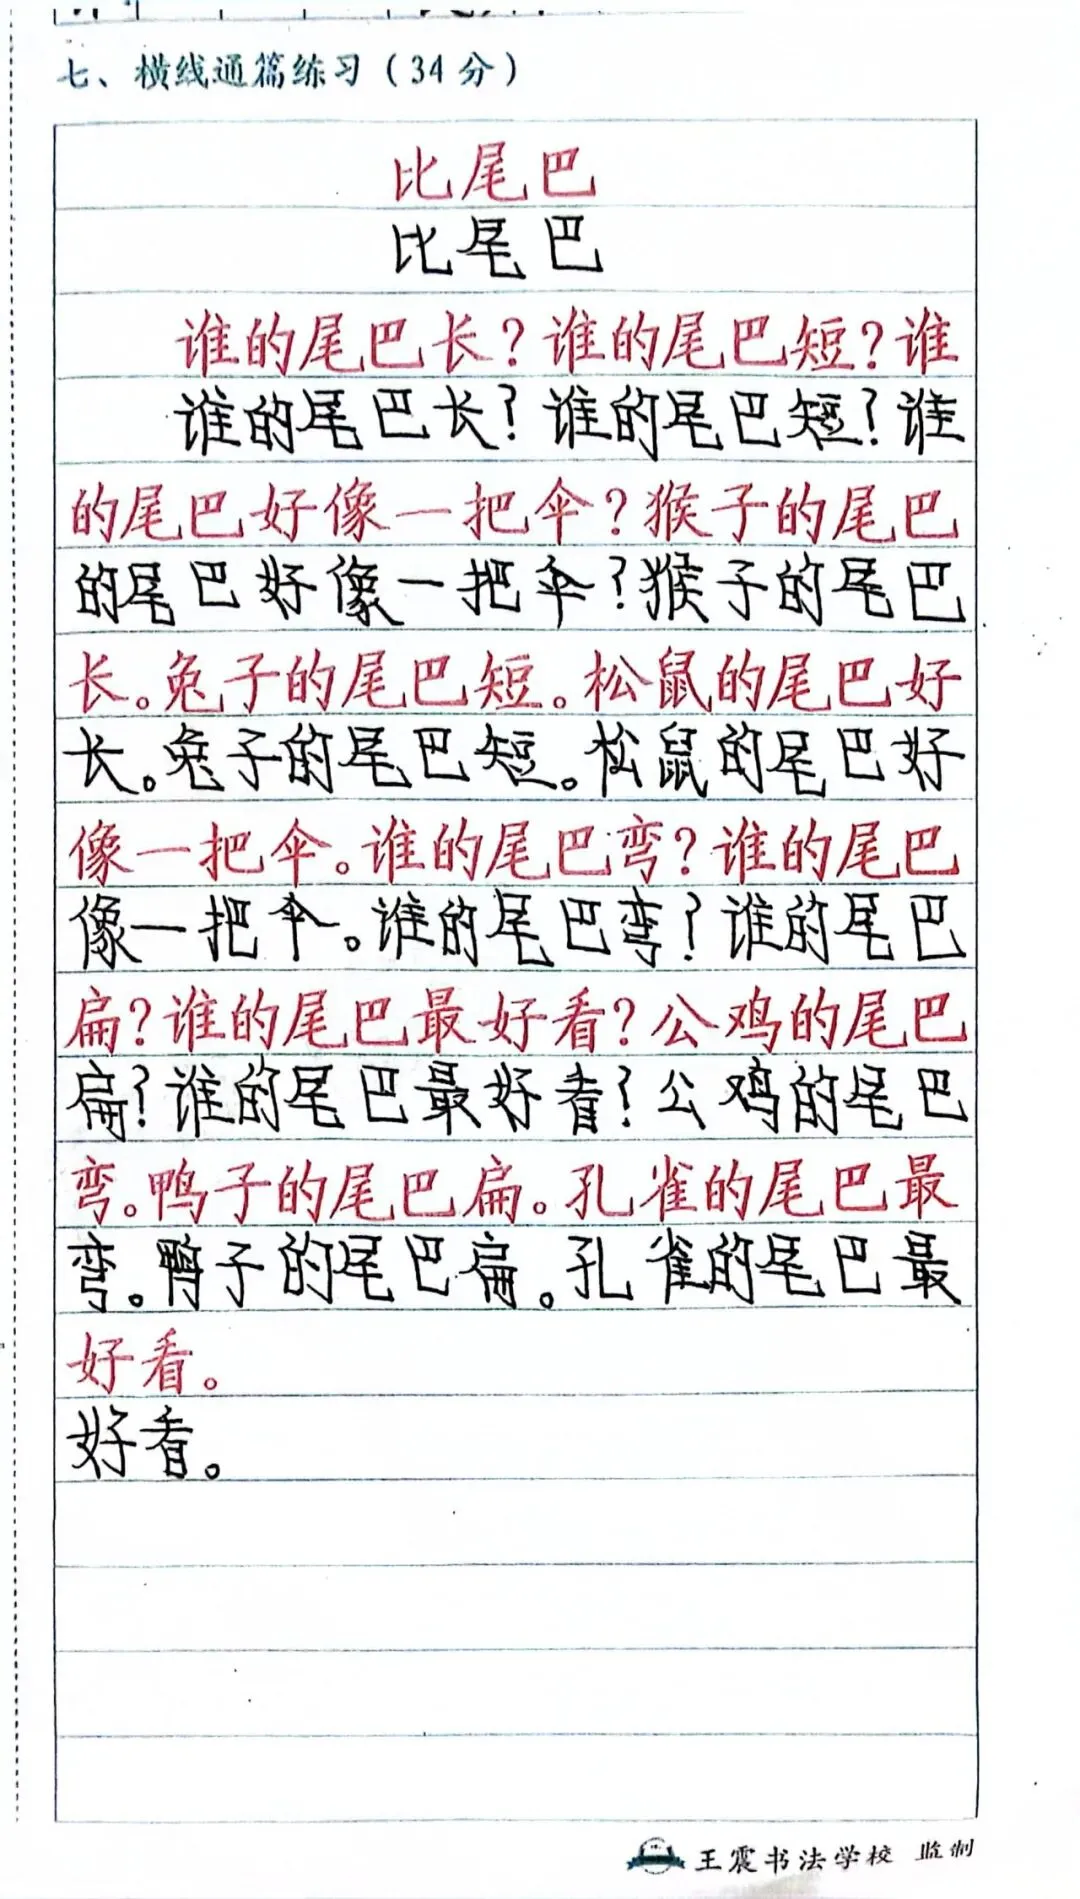 七、横线通篇练习（34分）
比尾巴
比尾巴
谁的尾巴长？谁的尾巴短？谁
谁的尾巴长？谁的尾巴短？谁
的尾巴好像一把伞？猴子的尾巴
的尾巴好像一把伞？猴子的尾巴
长。兔子的尾巴短。松鼠的尾巴好
长。兔子的尾巴短。松鼠的尾巴好
像一把伞。谁的尾巴弯？谁的尾巴
像一把伞。谁的尾巴弯？谁的尾巴
扁？谁的尾巴最好看？公鸡的尾巴
扁？谁的尾巴最好看？公鸡的尾巴
弯。鸭子的尾巴扁。孔雀的尾巴最
弯。鸭子的尾巴扁。孔雀的尾巴最
好看。
好看。
王震书法学校 监制